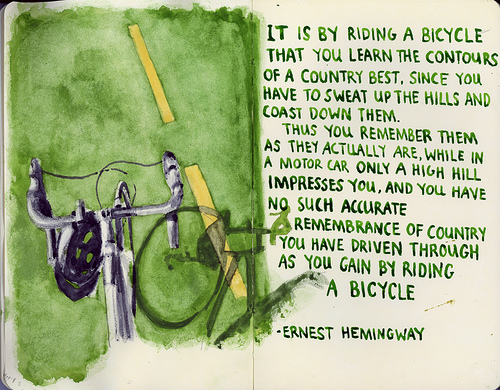 IT IS BY RIDING A BICYCLE
THAT YOU LEARN THE CONTOURS
OF A COUNTRY BEST, SINCE YOU
HAVE TO SWEAT UP THE HILLS AND
COAST DOWN THEM.
THUS YOU REMEMBER THEM
AS THEY ACTUALLY ARE, WHILE IN
A MOTOR CAR ONLY A HIGH HILL
IMPRESSES YOU, AND YOU HAVE
NO SUCH ACCURATE
REMEMBRANCE OF COUNTRY
YOU HAVE DRIVEN THROUGH
AS YOU GAIN BY RIDING
A BICYCLE
-ERNEST HEMINGWAY